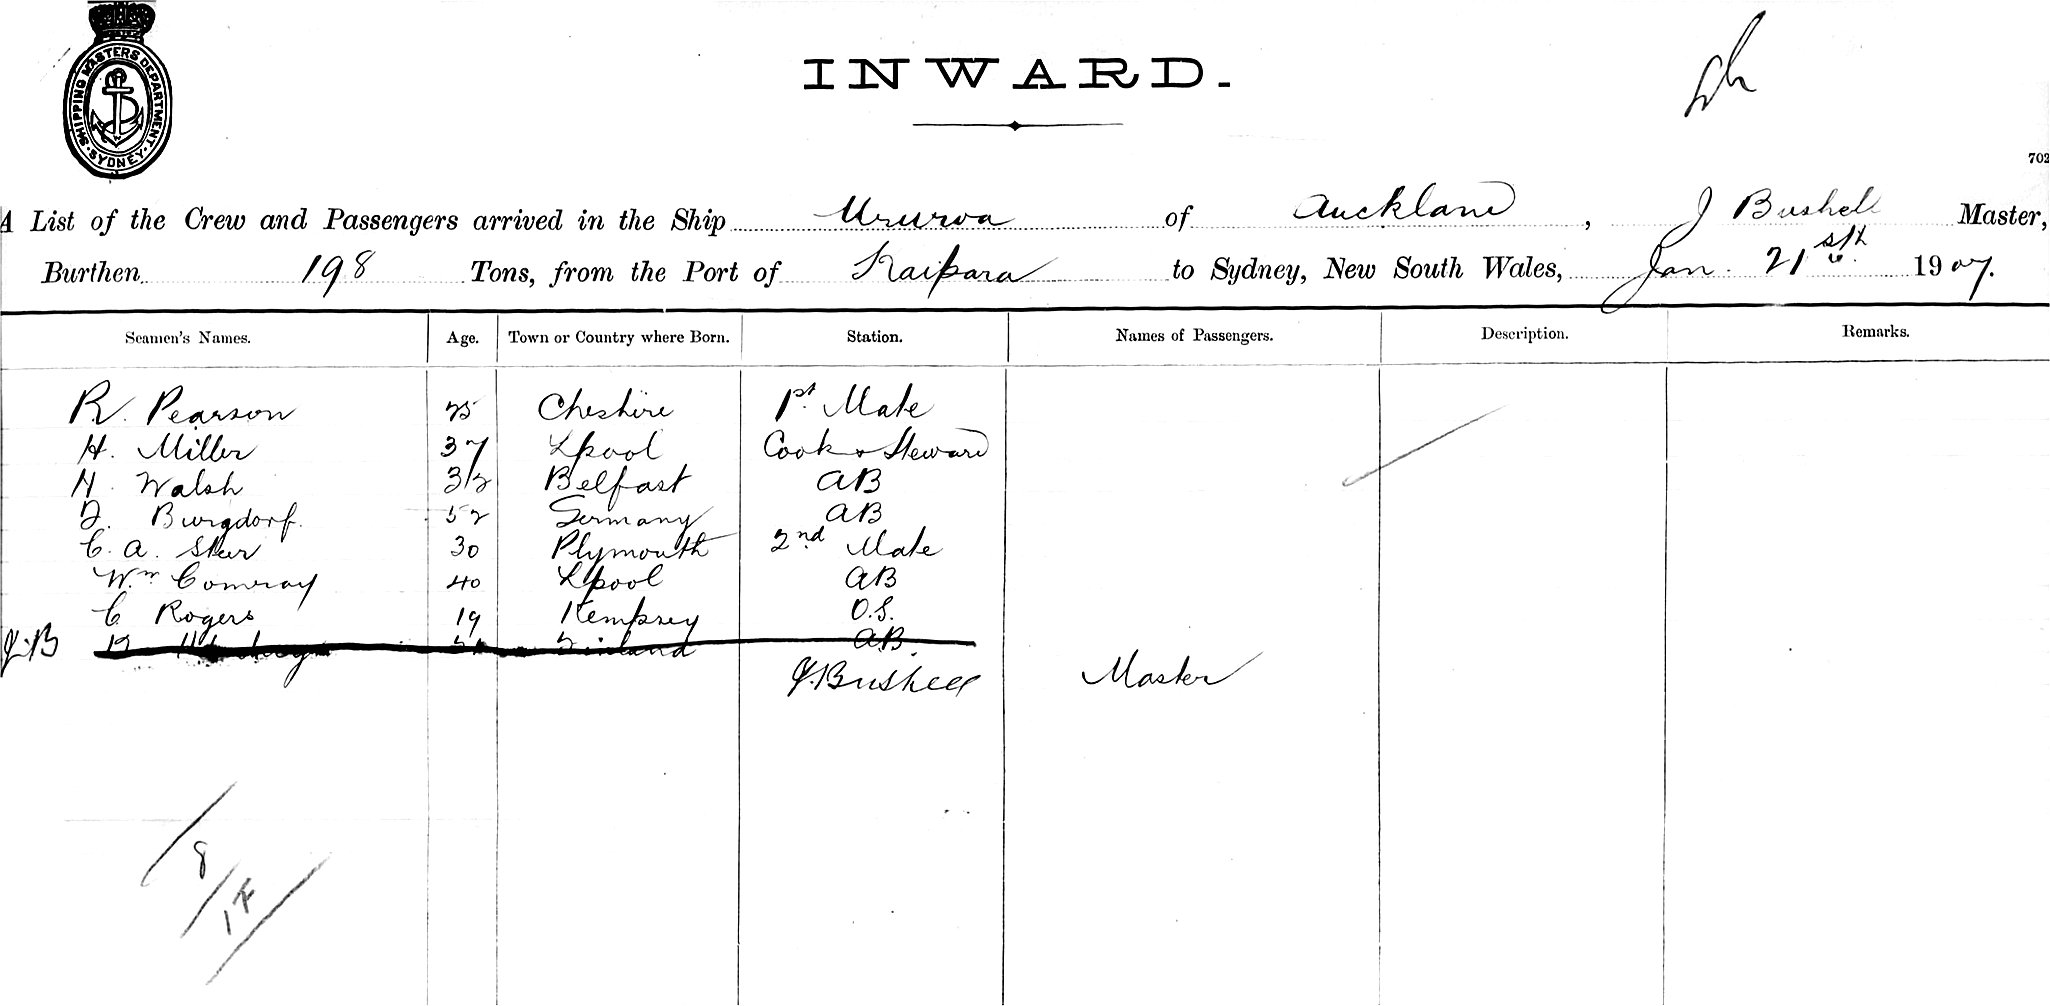 SHIPPING MASTERS DEPARTMENT · SYDNEY ·
INWARD.
702
A List of the Crew and Passengers arrived in the Ship Ururoa of Auckland, J Bushell Master,
Burthen 198 Tons, from the Port of Kaipara to Sydney, New South Wales, Jan. 21st 1907.
Seamen's Names. Age. Town or Country where Born. Station. Names of Passengers. Description. Remarks.
R. Pearson 25 Cheshire 1st Mate
H. Miller 37 Lpool Cook & Steward
H. Walsh 32 Belfast AB
F. Burgdorf. 52 Germany AB
C. A. Steer 30 Plymouth 2nd Mate
Wm Comray 40 Lpool AB
C Rogers 19 Kempsey O.S.
J.B Finland AB.
J. Bushell Master
8
1 F